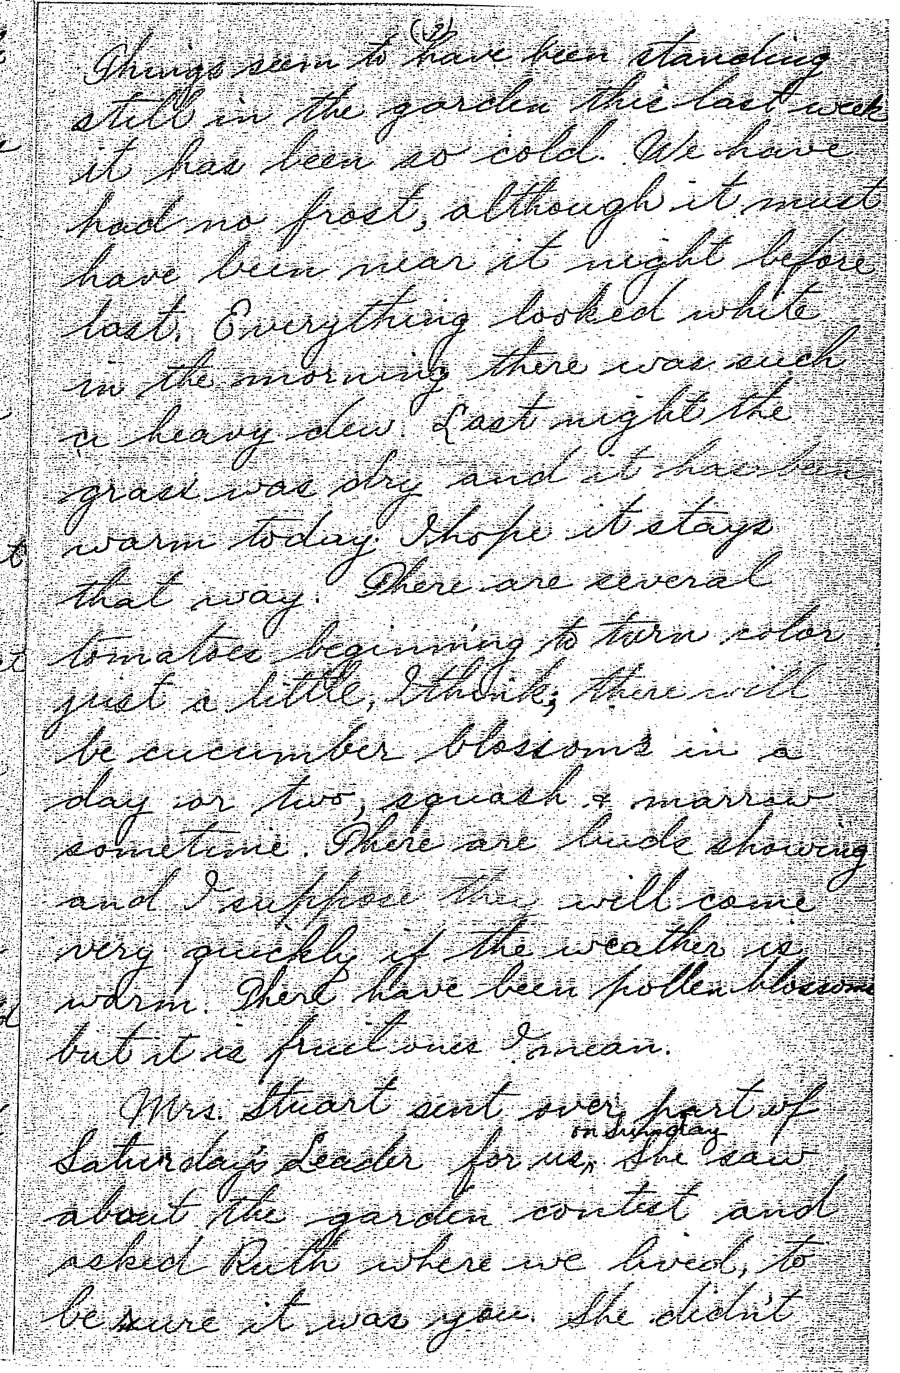 Things seem to have been standing
still in the garden this last week
it has been so cold. We have
had no frost, although it must
have been near it night before
last. Everything looked white
in the morning there was such
a heavy dew. Last night the
grass was dry and it has been
warm today. I hope it stays
that way. There are several
tomatoes beginning to turn color
just a little, I think; there will
be cucumber blossoms in a
day or two, squash & marrow
sometime. There are buds showing
and I suppose they will come
very quickly if the weather is
warm. There have been pollen blossoms
but it is fruit ones I mean.
Mrs. Stuart sent over part of
on Sunday
Saturday's Leader for us. She saw
about the garden contest and
asked Ruth where we lived, to
be sure it was you. She didn't